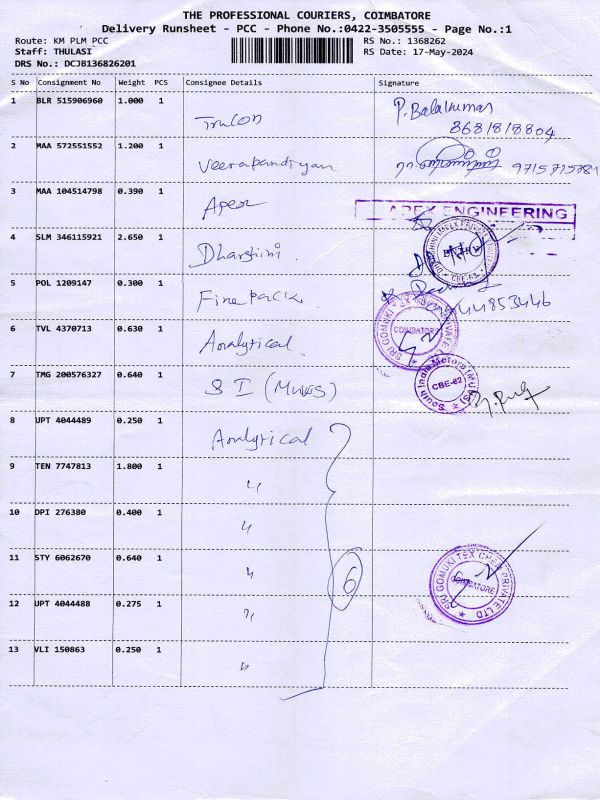 THE PROFESSIONAL COURIERS, COIMBATORE
Delivery Runsheet - PCC - Phone No.:0422-3505555 - Page No.:1
Route: KM PLM PCC RS No.: 1368262
Staff: THULASI RS Date: 17-May-2024
DRS No.: DCJB136826201
S No Consignment No Weight PCS Consignee Details Signature
1 BLR 515906960 1.000 1 Trucon P. Balakumar
8681818804
2 MAA 572551552 1.200 1 Veerapandiyan 9715715781
3 MAA 104514798 0.390 1 Apex APEX ENGINEERING
4 SLM 346115921 2.650 1 Dharshini. CBE-62
5 POL 1209147 0.300 1 Fine pack
6 TVL 4370713 0.630 1 Analytical SRI GOMUKI TEX CHEM PRIVATE LTD COIMBATORE
7 TMG 200576327 0.640 1 S I (Mills) South India Motors CBE-62
8 UPT 4044489 0.250 1 Analytical
9 TEN 7747813 1.800 1 "
10 DPI 276380 0.400 1 "
11 STY 6062670 0.640 1 " 6 SRI GOMUKI TEX CHEM PRIVATE LTD COIMBATORE
12 UPT 4044488 0.275 1 "
13 VLI 150863 0.250 1 "